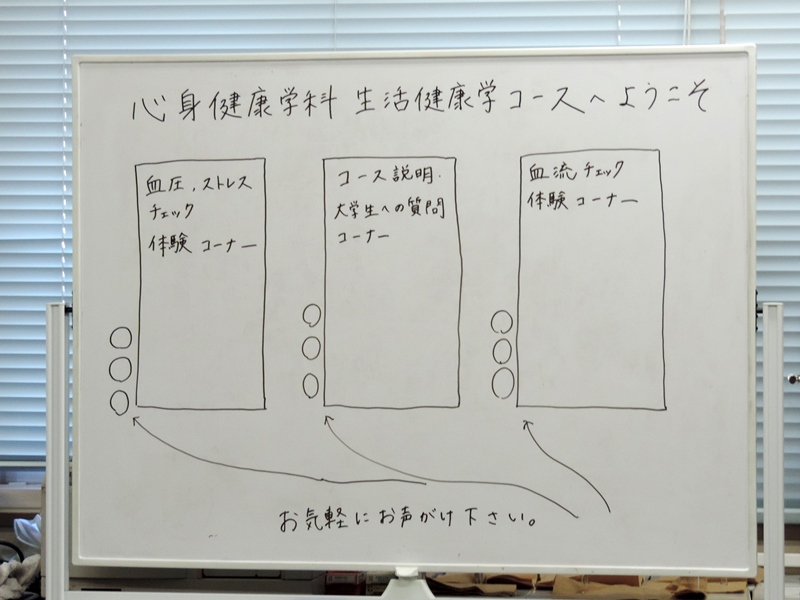 心身健康学科 生活健康学コースへようこそ
血圧、ストレス
チェック
体験 コーナー
コース説明.
大学生への質問
コーナー
血流チェック
体験コーナー
お気軽にお声がけ下さい。